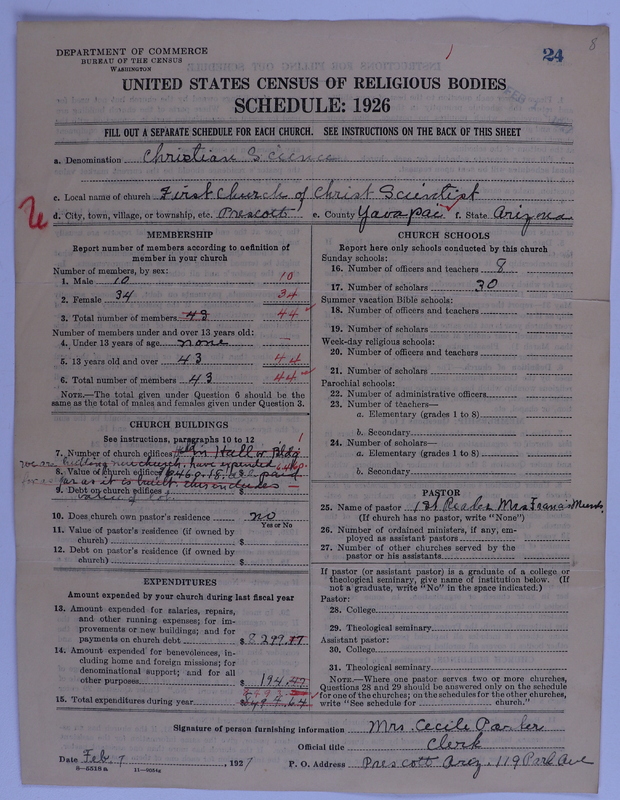 DEPARTMENT OF COMMERCE
BUREAU OF THE CENSUS
WASHINGTON
24
8
UNITED STATES CENSUS OF RELIGIOUS BODIES
SCHEDULE: 1926
FILL OUT A SEPARATE SCHEDULE FOR EACH CHURCH. SEE INSTRUCTIONS ON THE BACK OF THIS SHEET
a. Denomination Christian Science
c. Local name of church First Church of Christ Scientist
d. City, town, village, or township, etc. Prescott e. County Yavapai f. State Arizona
MEMBERSHIP
Report number of members according to definition of
member in your church
Number of members, by sex:
1. Male 10 10
2. Female 34 34
3. Total number of members 43 44
Number of members under and over 13 years old:
4. Under 13 years of age none —
5. 13 years old and over 43 44
6. Total number of members 43 44
NOTE.—The total given under Question 6 should be the
same as the total of males and females given under Question 3.
CHURCH BUILDINGS
See instructions, paragraphs 10 to 12
7. Number of church edifices Hall or Bldg 1
we are building new church, have expended
8. Value of church edifices
far as it is built. this includes
9. Debt on church edifices $
10. Does church own pastor's residence no
Yes or No
11. Value of pastor's residence (if owned by
church) $
12. Debt on pastor's residence (if owned by
church) $
EXPENDITURES
Amount expended by your church during last fiscal year
13. Amount expended for salaries, repairs,
and other running expenses; for im-
provements or new buildings; and for
payments on church debt $ 8299.17
14. Amount expended for benevolences, in-
cluding home and foreign missions; for
denominational support; and for all
other purposes $ 194.47
15. Total expenditures during year $ 8493.64
CHURCH SCHOOLS
Report here only schools conducted by this church
Sunday schools:
16. Number of officers and teachers 8
17. Number of scholars 30
Summer vacation Bible schools:
18. Number of officers and teachers
19. Number of scholars
Week-day religious schools:
20. Number of officers and teachers
21. Number of scholars
Parochial schools:
22. Number of administrative officers
23. Number of teachers—
a. Elementary (grades 1 to 8)
b. Secondary
24. Number of scholars—
a. Elementary (grades 1 to 8)
b. Secondary
PASTOR
25. Name of pastor 1st Reader Mrs Francis
(If church has no pastor, write "None")
26. Number of ordained ministers, if any, em-
ployed as assistant pastors
27. Number of other churches served by the
pastor or his assistants
If pastor (or assistant pastor) is a graduate of a college or
theological seminary, give name of institution below. (If
not a graduate, write "No" in the space indicated.)
Pastor:
28. College
29. Theological seminary
Assistant pastor:
30. College
31. Theological seminary
NOTE.—Where one pastor serves two or more churches,
Questions 28 and 29 should be answered only on the schedule
for one of the churches; on the schedules for the other churches,
write "See schedule for church."
Signature of person furnishing information Mrs. Cecile Parker
Official title Clerk
Date Feb. 7, 1927 P. O. Address Prescott Ariz. 119 Park Ave
8—5518a 11—9084a